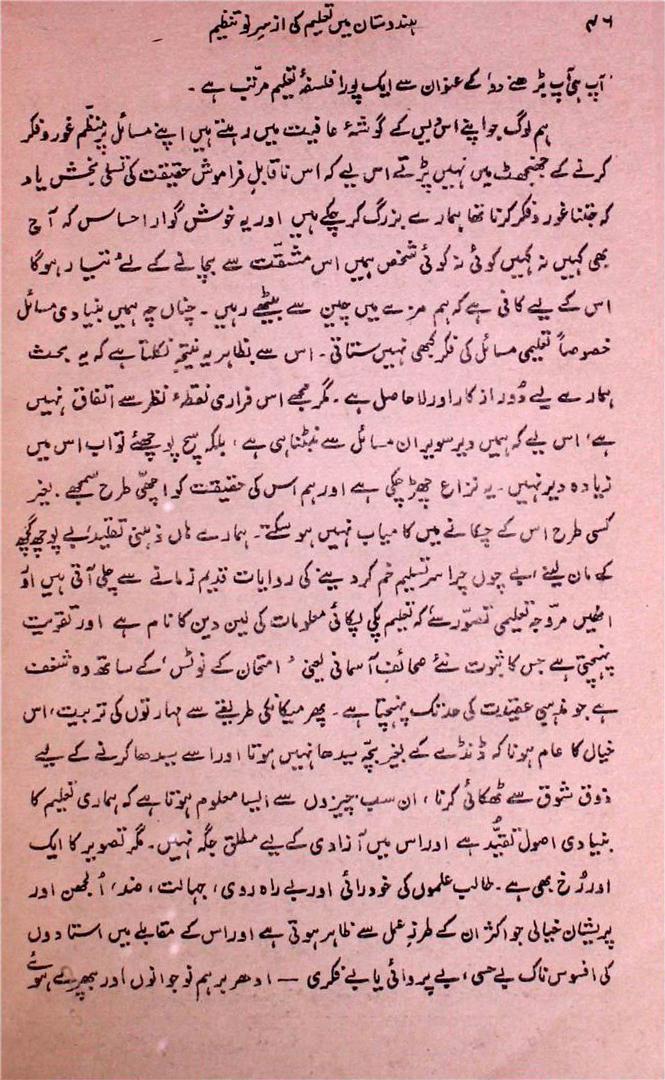 ۴۶ ہندوستان میں تعلیم کی ازسرِنو تنظیم
'آپ ہی آپ پڑھنے دو' کے عنوان سے ایک پورا فلسفۂ تعلیم مرتّب ہے۔
ہم لوگ جو اپنے اس دیس کے گوشۂ عافیت میں رہتے ہیں اپنے مسائل پر منظّم غور و فکر
کرنے کے جھنجھٹ میں نہیں پڑتے اس لیے کہ اس ناقابلِ فراموش حقیقت کی تسلی بخش یاد
کہ جتنا غور و فکر کرنا تھا ہمارے بزرگ کر چکے ہیں اور یہ خوش گوار احساس کہ آج
بھی کہیں نہ کہیں کوئی نہ کوئی شخص ہمیں اس مشقّت سے بچانے کے لیے تیار ہوگا
اس کے لیے کافی ہے کہ ہم مزے میں چین سے بیٹھے رہیں۔ چناں چہ ہمیں بنیادی مسائل
خصوصاً تعلیمی مسائل کی فکر کبھی نہیں ستاتی۔ اس سے بظاہر یہ نتیجہ نکلتا ہے کہ یہ بحث
ہمارے لیے دُور از کار اور لاحاصل ہے۔ مگر مجھے اس فراری نقطۂ نظر سے اتفاق نہیں
ہے، اس لیے کہ ہمیں دیر سویر ان مسائل سے نبٹنا ہی ہے، بلکہ سچ پوچھئے تو اب اس میں
زیادہ دیر نہیں۔ یہ نزاع چھڑ چکی ہے اور ہم اس کی حقیقت کو اچھّی طرح سمجھے بغیر
کسی طرح اس کے چکانے میں کامیاب نہیں ہو سکتے۔ ہمارے ہاں ذہنی تقلید، بے پوچھ گچھ
کے مان لینے، بے چوں چرا سرِ تسلیم خم کر دینے کی روایات قدیم زمانے سے چلی آتی ہیں اور
انھیں مروّجہ تعلیمی تصوّر سے کہ تعلیم پکی پکائی معلومات کی لین دین کا نام ہے اور تقویت
پہنچتی ہے جس کا ثبوت نئے صحائفِ آسمانی یعنی 'امتحان کے نوٹس' کے ساتھ وہ شغف
ہے جو مذہبی عقیدت کی حد تک پہنچتا ہے۔ پھر میکانکی طریقے سے مہارتوں کی تربیت، اس
خیال کا عام ہونا کہ ڈنڈے کے بغیر بچّہ سیدھا نہیں ہوتا اور اسے سیدھا کرنے کے لیے
ذوق شوق سے ٹھکائی کرنا، ان سب چیزوں سے ایسا معلوم ہوتا ہے کہ ہماری تعلیم کا
بنیادی اصول تقیُّد ہے اور اس میں آزادی کے لیے مطلق جگہ نہیں۔ مگر تصویر کا ایک
اور رُخ بھی ہے۔ طالب علموں کی خودرائی اور بے راہ روی، جہالت، ضد، اُلجھن اور
پریشان خیالی جو اکثر ان کے طرزِ عمل سے ظاہر ہوتی ہے اور اس کے مقابلے میں استادوں
کی افسوس ناک بے حسی، بے پروائی یا بے فکری — ادھر برہم نوجوانوں اور بپھرے ہوئے